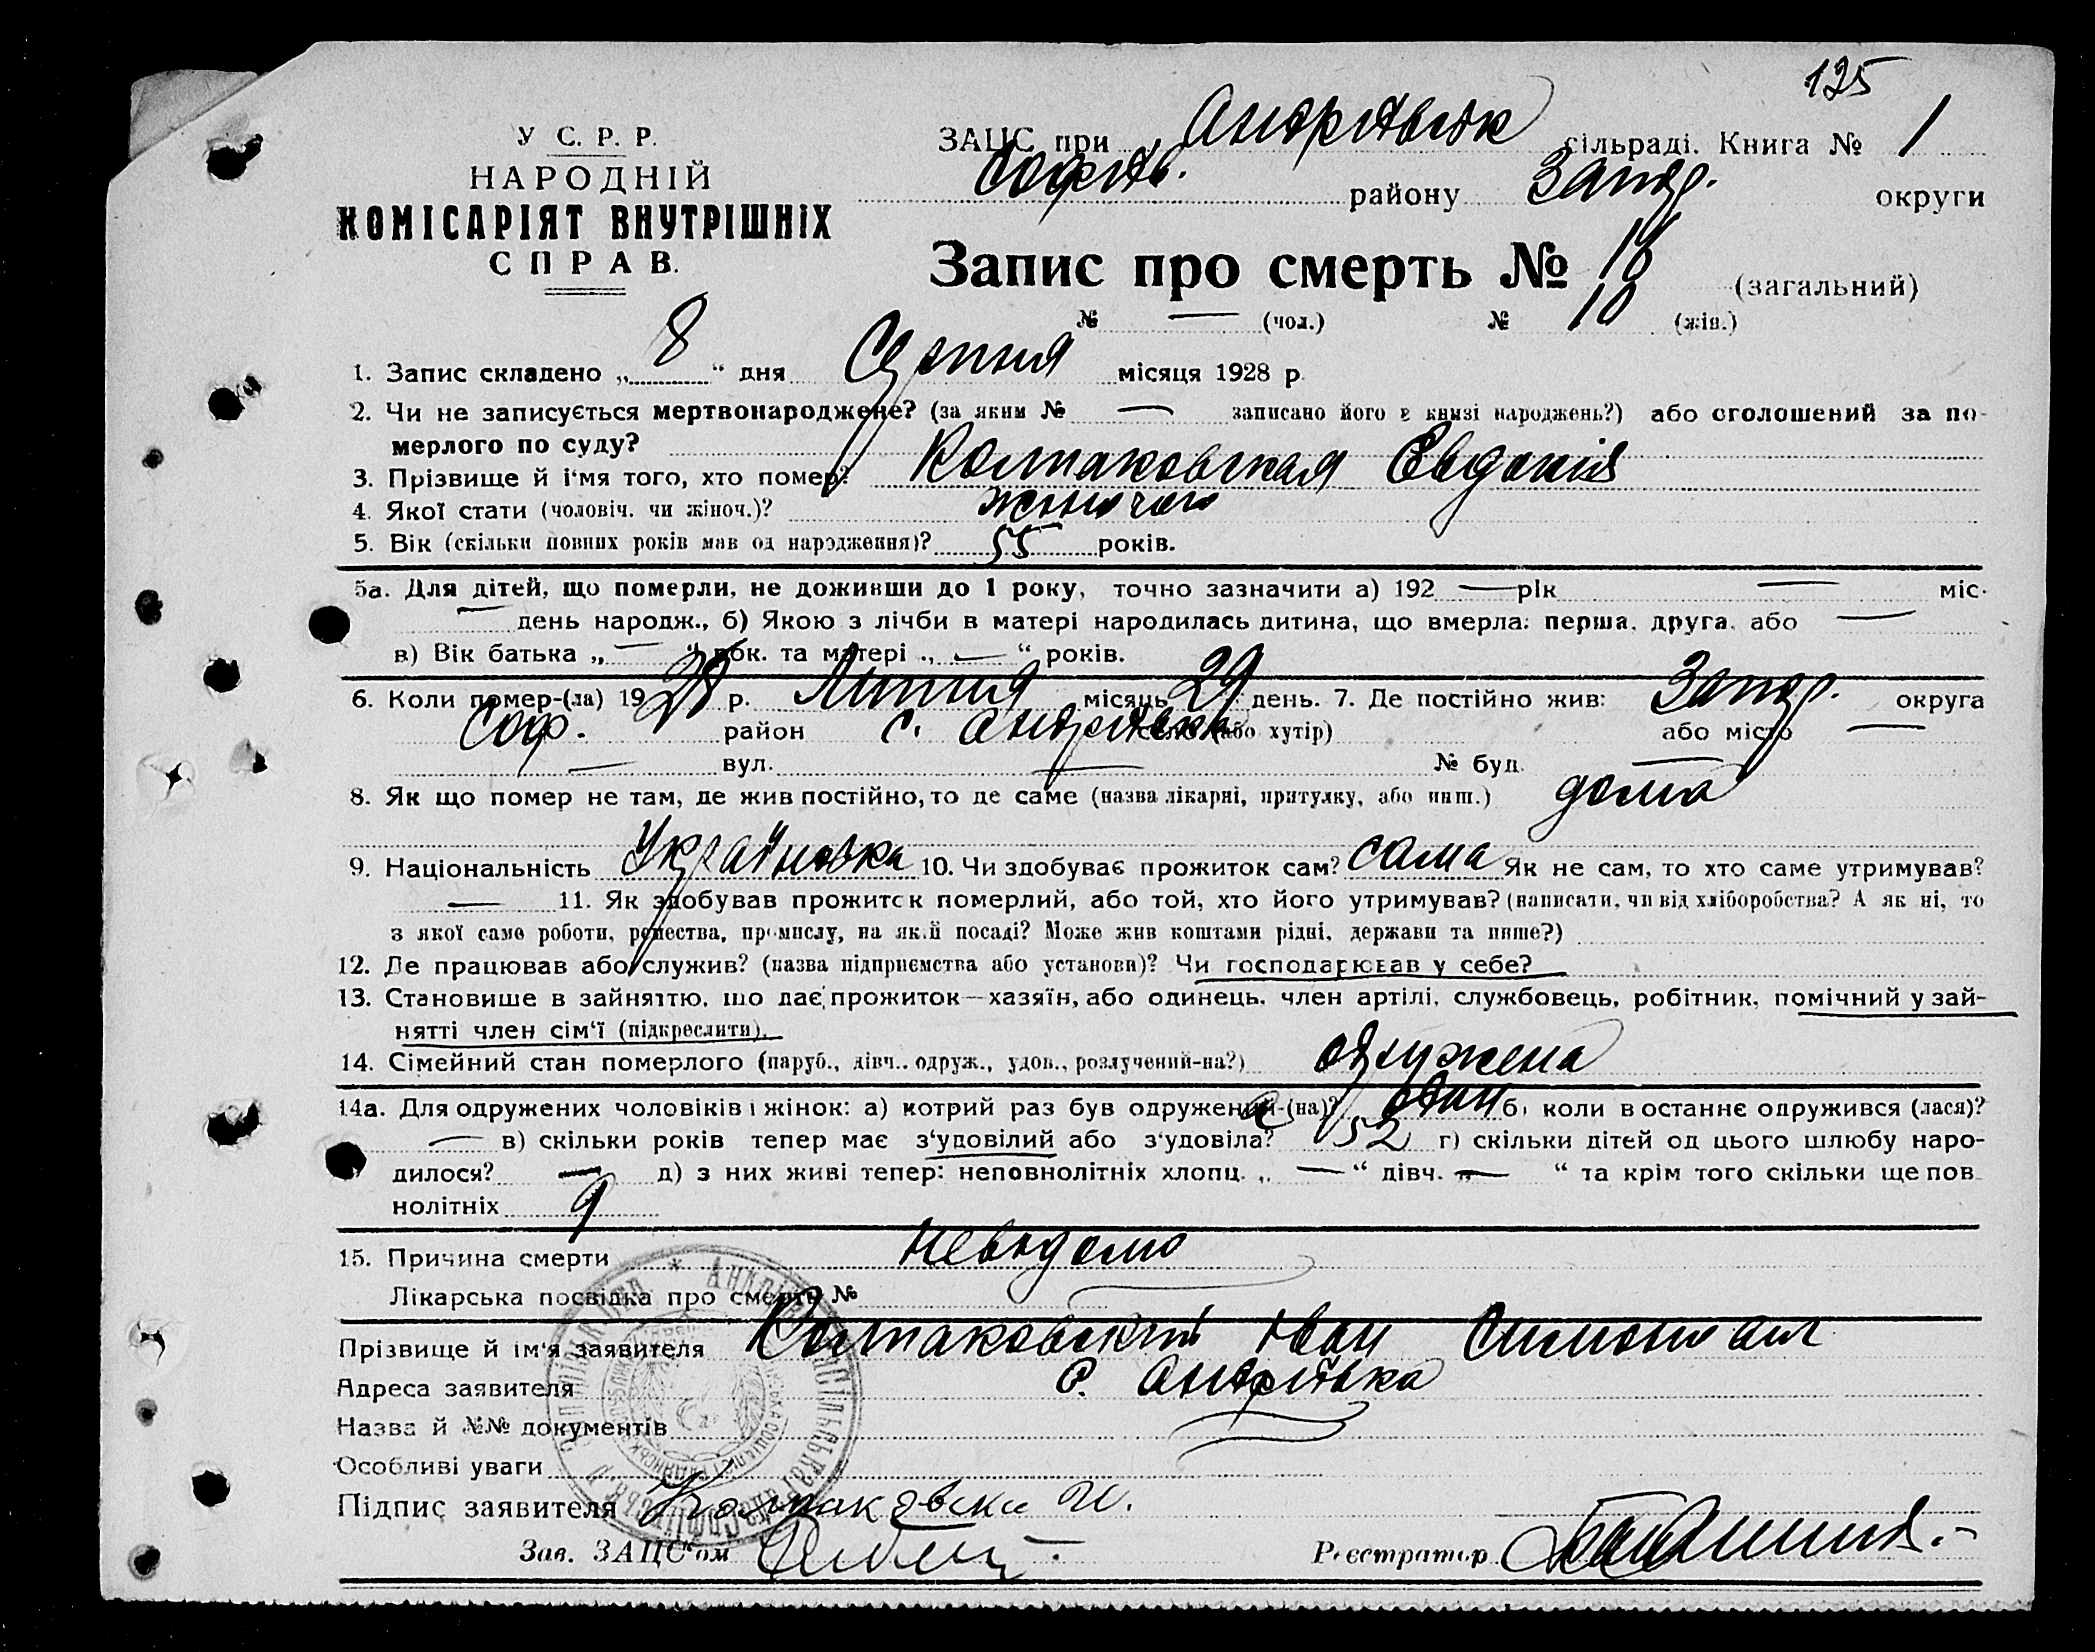 125
У С. Р. Р.
НАРОДНІЙ
КОМІСАРІЯТ ВНУТРІШНІХ
СПРАВ.
ЗАЦС при Андріївськ сільраді. Книга № 1
Софіїв. району Запор. округи
Запис про смерть № 16 (загальний)
№ — (чол.) № 10 (жін.)
1. Запис складено „ 8 “ дня Серпня місяця 1928 р.
2. Чи не записується мертвонароджене? (за яким № — записано його в книзі народжень?) або оголошений за по-
мерлого по суду?
3. Прізвище й і'мя того, хто помер? Колпаковская Евдокія
4. Якої стати (чоловіч. чи жіноч.)? жіночого
5. Вік (скільки повних років мав од народження)? 55 років.
5а. Для дітей, що померли, не доживши до 1 року, точно зазначити а) 192 — рік — міс.
— день народж., б) Якою з лічби в матері народилась дитина, що вмерла: перша, друга, або —
в) Вік батька „ — “ рок. та матері „ — “ років.
6. Коли помер-(ла) 1928 р. Липня місяць 29 день. 7. Де постійно жив: Запор. округа
Соф. район с. Андріївка село (або хутір) або місто —
— вул. — № буд. —
8. Як що помер не там, де жив постійно, то де саме (назва лікарні, притулку, або инш.) дома
9. Національність Українська 10. Чи здобуває прожиток сам? сама Як не сам, то хто саме утримував?
— 11. Як здобував прожиток померлий, або той, хто його утримував? (написати, чи від хліборобства? А як ні, то
з якої саме роботи, ремества, промислу, на якій посаді? Може жив коштами рідні, держави та инше?)
12. Де працював або служив? (назва підприємства або установи)? Чи господарював у себе?
13. Становище в зайняттю, що дає прожиток—хазяїн, або одинець, член артілі, службовець, робітник, помічний у зай-
нятті член сім'ї (підкреслити).
14. Сімейний стан померлого (паруб., дівч., одруж., удов., розлучений-на?) одружена
14а. Для одружених чоловіків і жінок: а) котрий раз був одружений-(на)? один б) коли в останнє одружився (лася)?
— в) скільки років тепер має з'удовілий або з'удовіла? 52 г) скільки дітей од цього шлюбу наро-
дилося? — д) з них живі тепер: неповнолітніх хлопц. „ — “ дівч. „ — “ та крім того скільки ще пов-
нолітніх 9
15. Причина смерти невідомо
Лікарська посвідка про смерть №
Прізвище й ім'я заявителя Колпаковский Іван
Адреса заявителя с. Андріївка
Назва й №№ документів
Особливі уваги
Підпис заявителя
Зав. ЗАЦС'ом Реєстратор